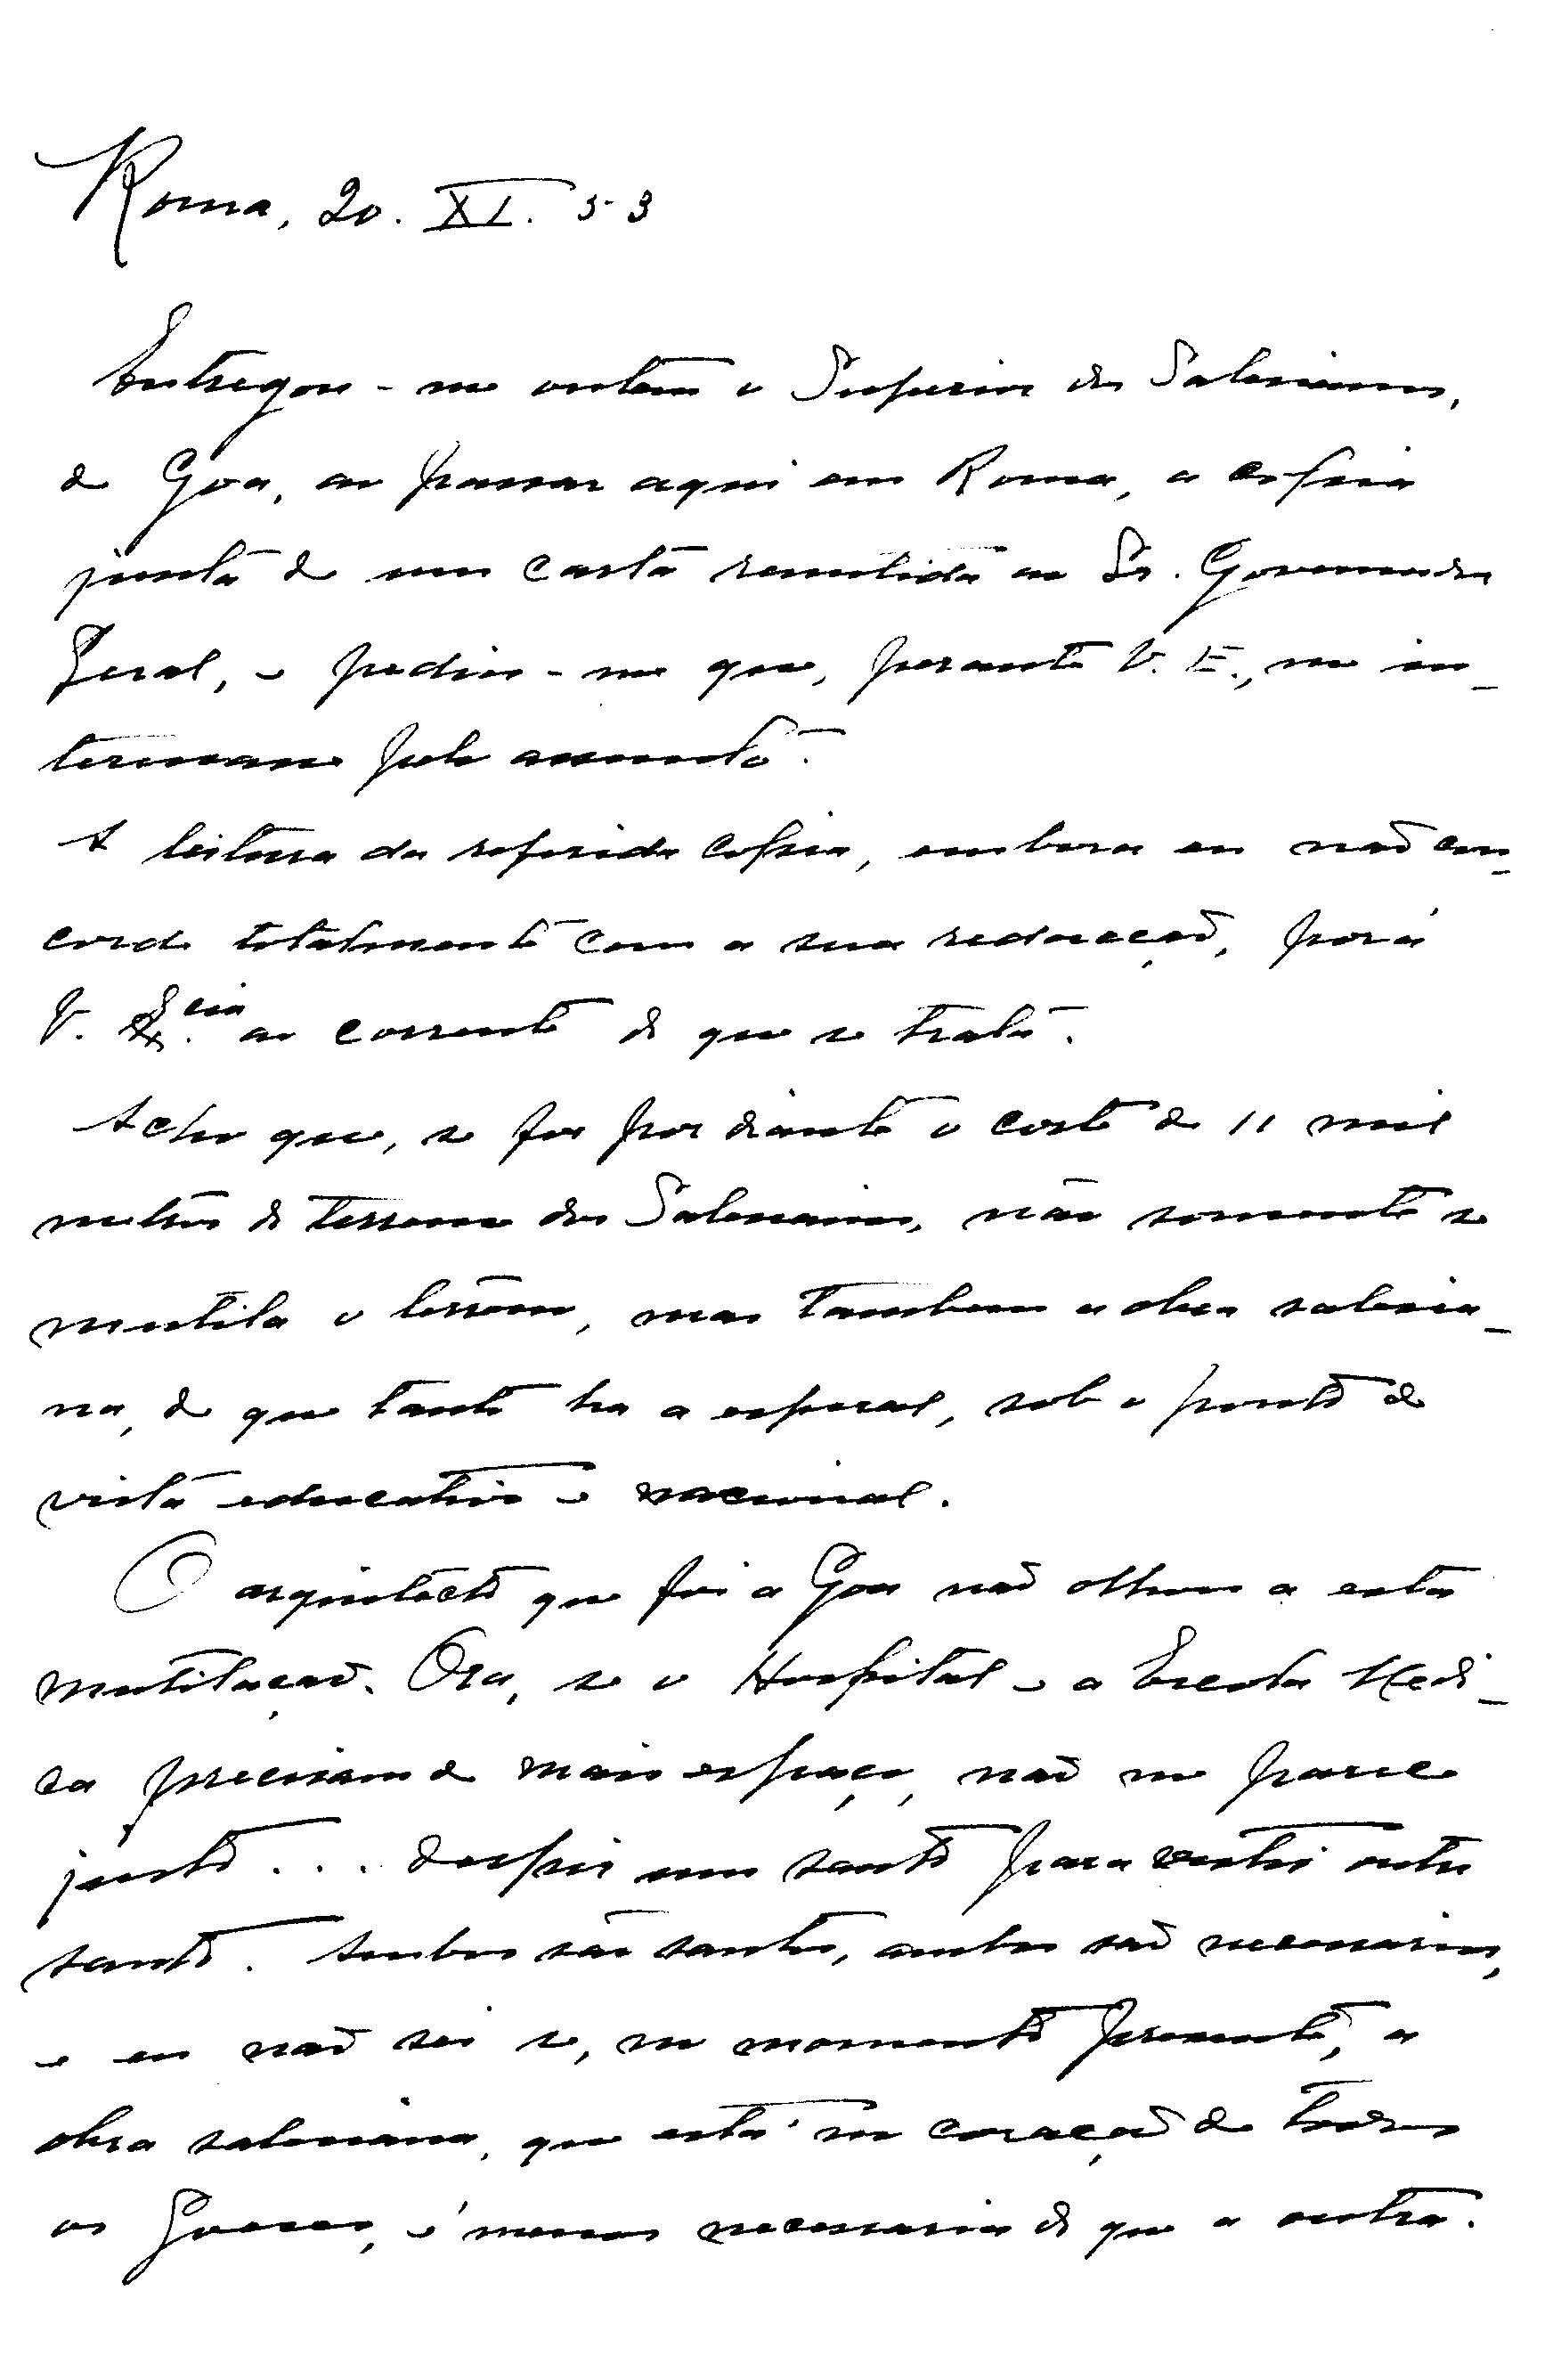 Roma, 20. XI. 53
Entregou-me ontem o Superior dos Salesianos,
de Goa, ao passar aqui em Roma, a copia
junta de um carta remetida ao Sr. Governador
Geral, e pediu-me que, perante V. E., me in-
teressasse pelo assunto.
A leitura da referida copia, embora eu não con-
corde totalmente com a sua redacção, porá
V. Excia ao corrente de que se trata.
Acho que, se for por diante o corte de 11 mil
metros de terreno dos Salesianos, não somente se
mutila o terreno, mas tambem a obra salesia-
na, de que tanto ha a esperar, sob o ponto de
vista educativo e nacional.
O arquitecto que foi a Goa não olhou a esta
mutilação. Ora, se o Hospital e a Escola Medi-
ca precisam de mais espaço, não me parece
justo... despir um santo para vestir outro
santo. Ambos são santos, ambos são necessarios,
e eu não sei se, no momento presente, a
obra salesiana, que está no coração de todos
os Goeses, é menos necessaria do que a outra.